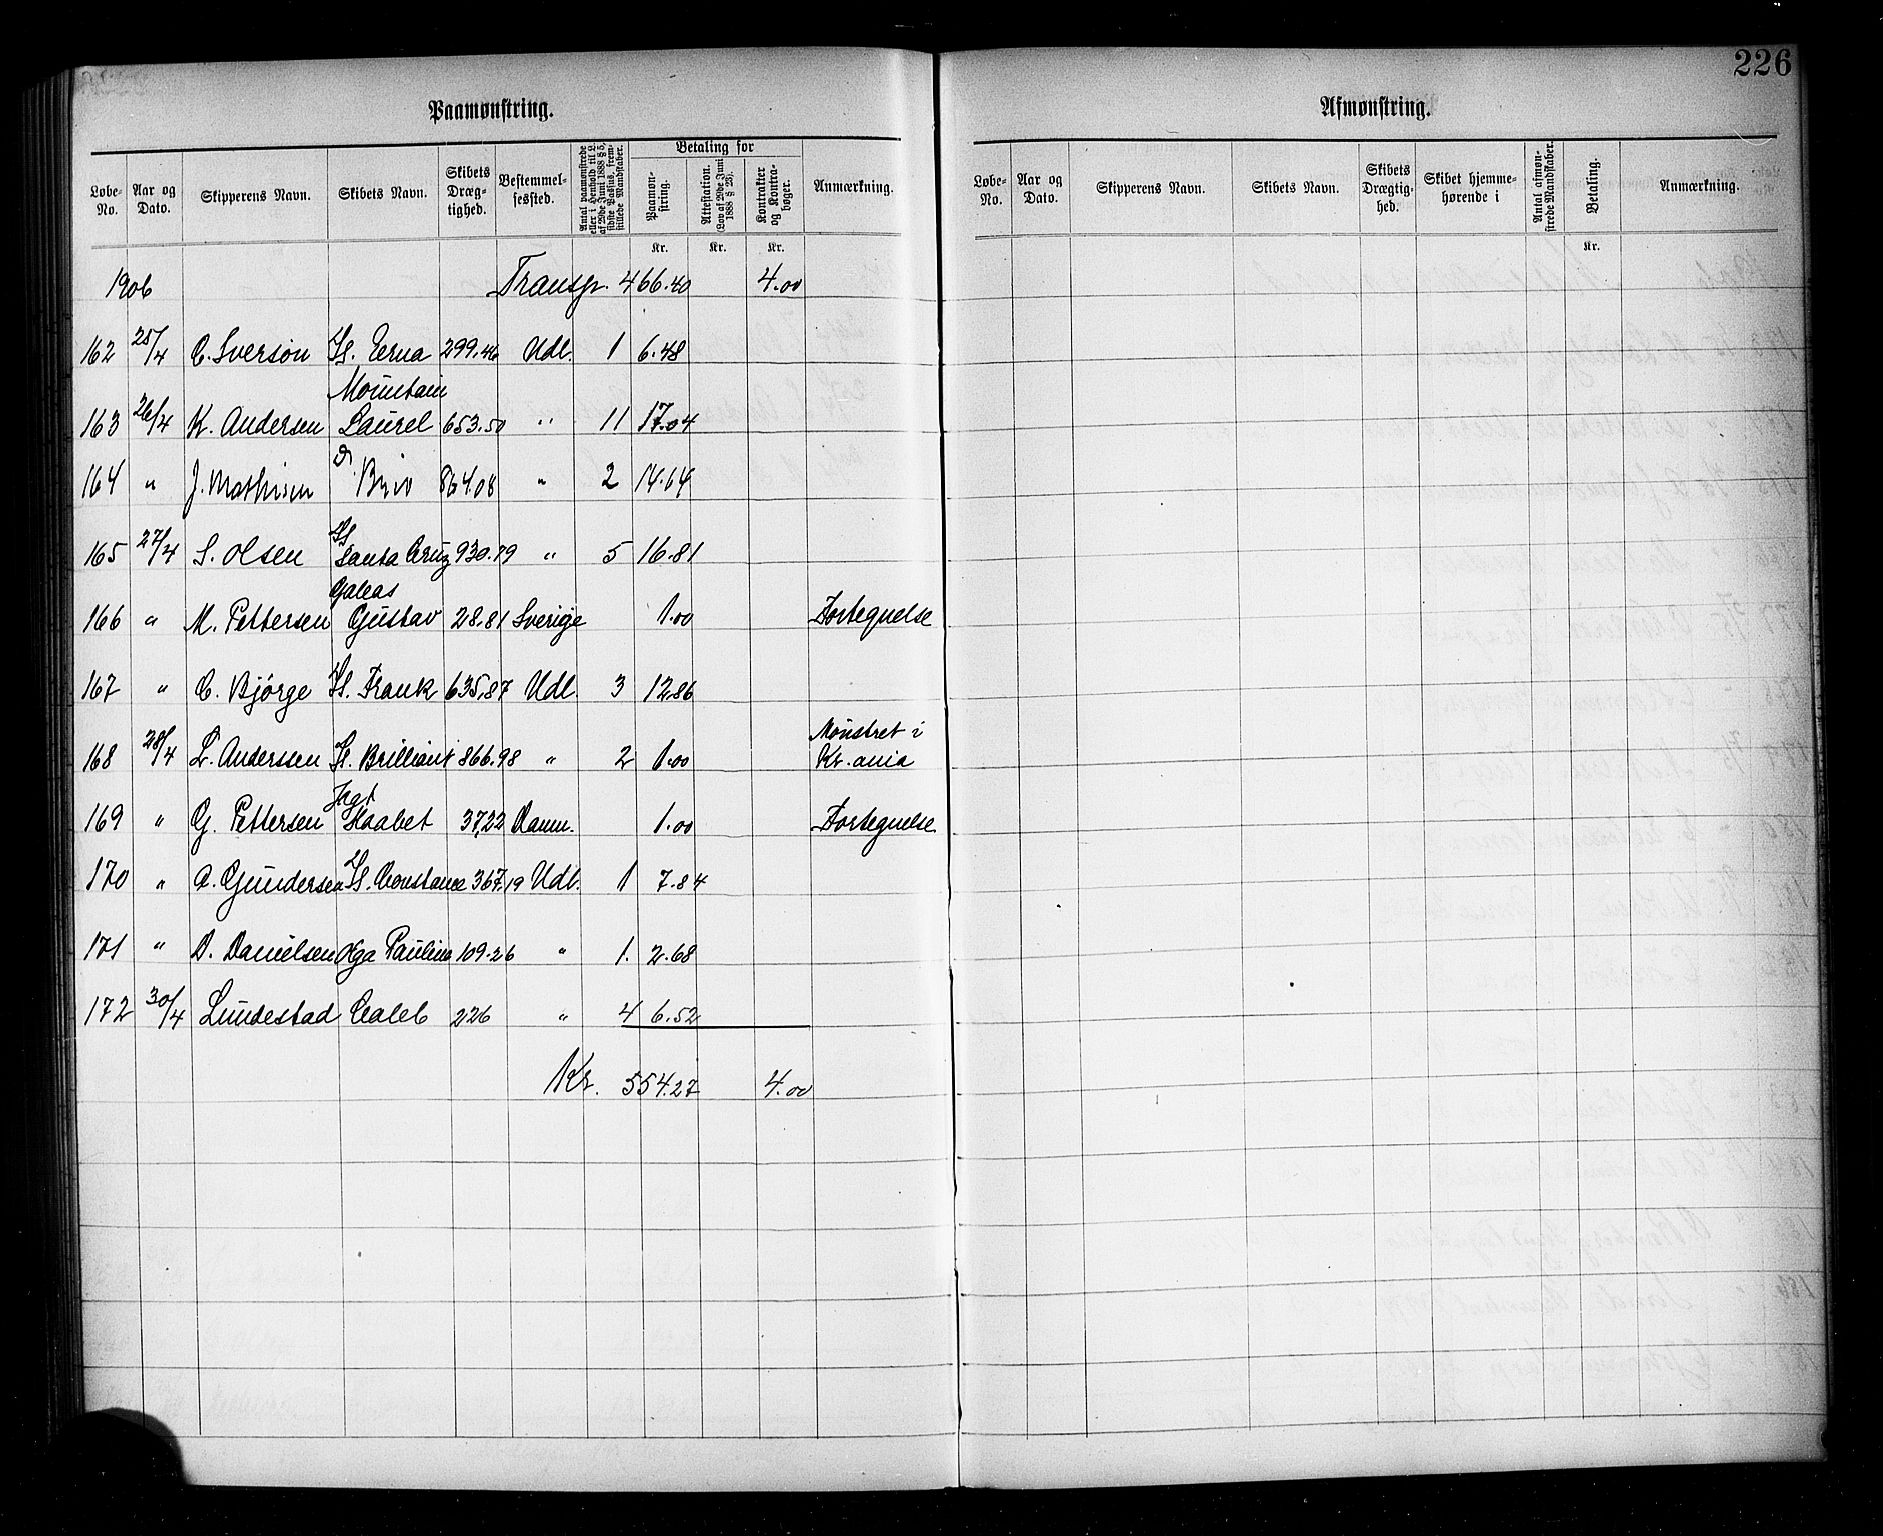 226
Paamønstring.
Løbe-No. Aar og Dato. Skipperens Navn. Skibets Navn. Skibets Dræg-tighed. Bestemmel-sessted. Antal paamønstrede eller i Henhold til L. af 29de Juni 1888 § 5, sidste Passus, frem-stillede Mandskaber. Betaling for Paamøn-string. Attestation. (Lov af 29de Juni 1888 § 23). Kontrakter og Kontra-bøger. Anmærkning.
Kr. Kr. Kr.
1906 Transp. 466.40 4.00
162 25/4 C. Sversøn Sk. Erna 299.46 Udl. 1 6.48
Mountain
163 26/4 K. Andersen Laurel 653.50 " 11 17.04
164 " J. Mathisen 864.08 " 2 14.64
165 27/4 S. Olsen Santa Cruz 930.79 " 5 16.81
Galeas
166 " M. Pettersen Gustav 28.81 Sverige 1.00 Fortegnelse
167 " C. Bjørge Sk. Frank 635,87 Udl. 3 12.86
Mønstret i
168 28/4 L. Anderssen Sk. Brilliant 866.98 " 2 1.00 Kr.ania
Jagt
169 " G. Pettersen Haabet 37,22 Danm. 1.00 Fortegnelse
170 " A. Gundersen Sk. Constance 367.19 Udl. 1 7.84
171 " D. Danielsen Olga Pauline 109.26 " 1. 2.68
172 30/4 Lundestad Caleb 226 " 4 6.52
Kr. 554.27 4.00
Afmønstring.
Løbe-No. Aar og Dato. Skipperens Navn. Skibets Navn. Skibets Drægtig-hed. Skibet hjemme-hørende i Antal afmøn-strede Mandskaber. Betaling. Anmærkning.
Kr.